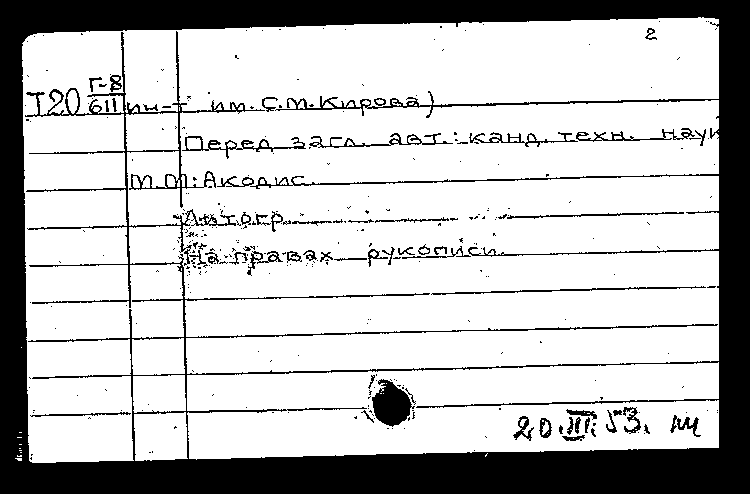 2
Т20 Г-8/611 ин-т им. С.М. Кирова)
Перед загл. авт.: канд. техн. наук
М.М. Акодис.
Литогр.
На правах рукописи.
20.III.53.